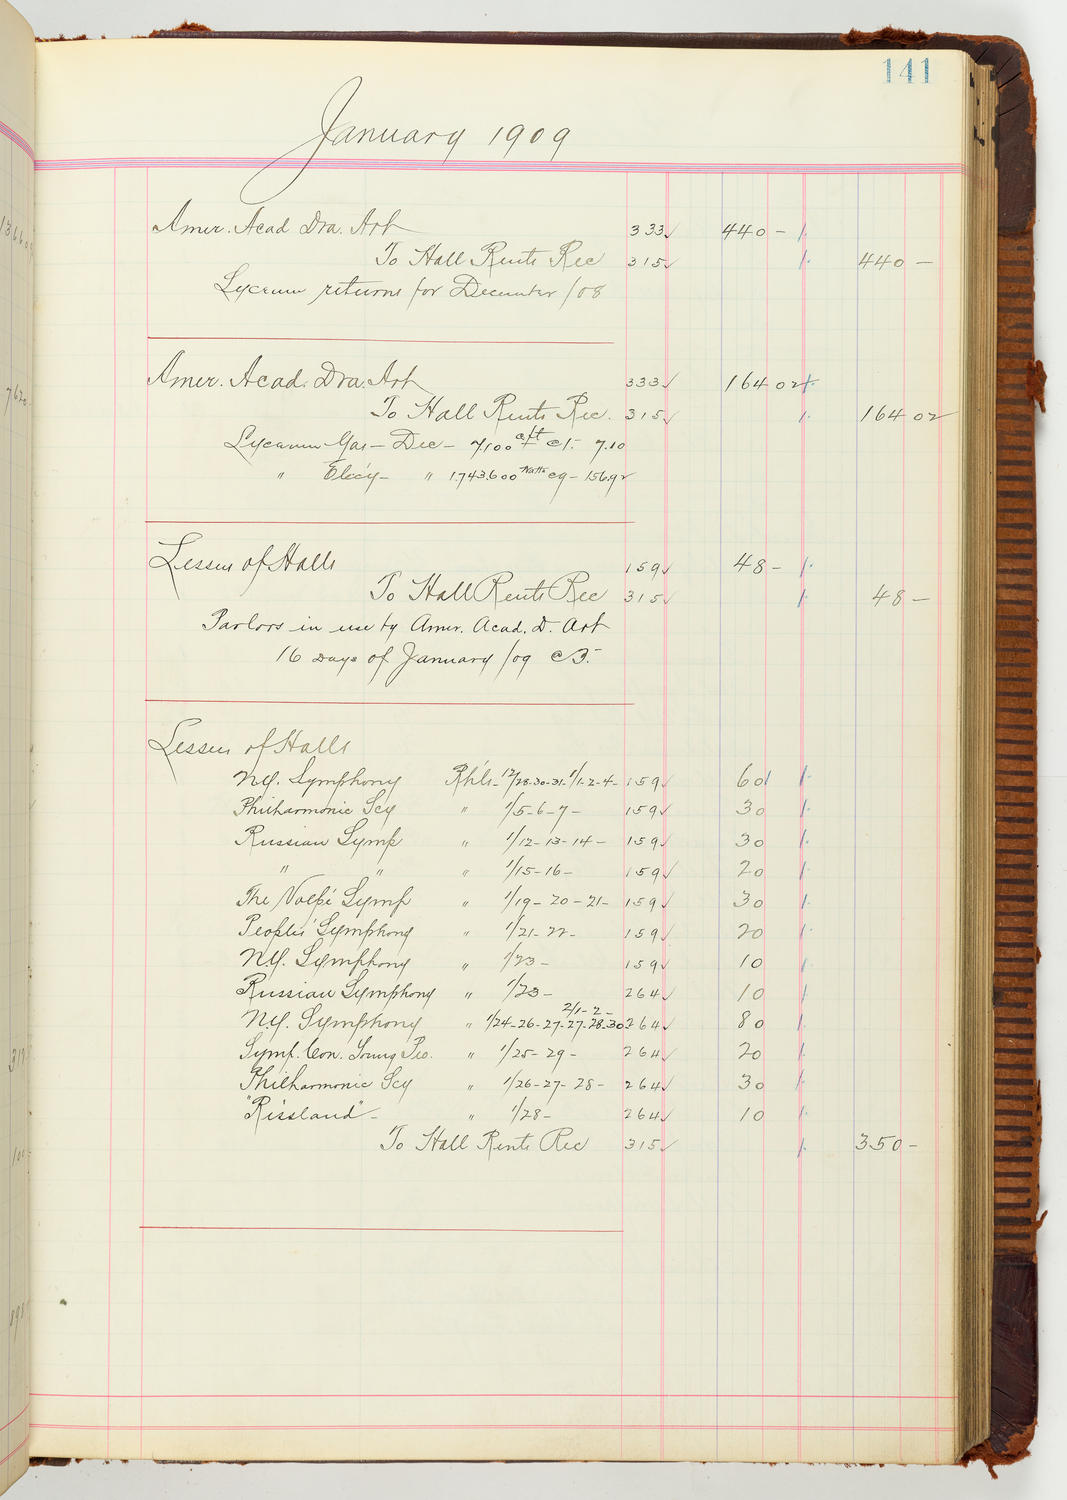 141
January 1909
Amer. Acad Dra. Art 333✓ 440 -
To Hall Rents Rec 315✓ 440 -
Lyceum returns for December /08
Amer. Acad. Dra. Art 333✓ 164 02
To Hall Rents Rec. 315✓ 164 02
Lyceum Gas - Dec - 7,100 c/ft @ 1.- 7.10
" Elec'y - " 1.743.600 Watts @ 9 - 156.92
Lessees of Halls 159✓ 48 -
To Hall Rents Rec 315✓ 48 -
Parlors in use by Amer. Acad. D. Art
16 Days of January /09 @ 3.-
Lessees of Halls
N.Y. Symphony Rh'ls - 12/28-30-31- 1/1-2-4- 159✓ 60
Philharmonic Scy " 1/5-6-7- 159✓ 30
Russian Symp " 1/12-13-14- 159✓ 30
" " " 1/15-16- 159✓ 20
The Volpé Symp " 1/19-20-21- 159✓ 30
Peoples' Symphony " 1/21-22- 159✓ 20
N.Y. Symphony " 1/23- 159✓ 10
Russian Symphony " 1/23- 264✓ 10
N.Y. Symphony " 1/24-26-27-27-28-30 2/1-2- 264✓ 80
Symp. Con. Young Peo. " 1/25-29- 264✓ 20
Philharmonic Scy " 1/26-27-28- 264✓ 30
" 1/28- 264✓ 10
To Hall Rents Rec 315✓ 350 -